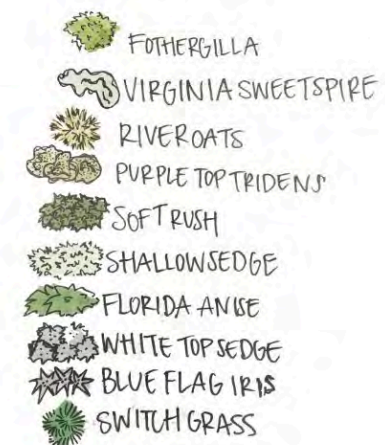 FOTHERGILLA
VIRGINIA SWEETSPIRE
RIVER OATS
PURPLE TOP TRIDENS
SOFT RUSH
SHALLOW SEDGE
FLORIDA ANISE
WHITE TOP SEDGE
BLUE FLAG IRIS
SWITCH GRASS